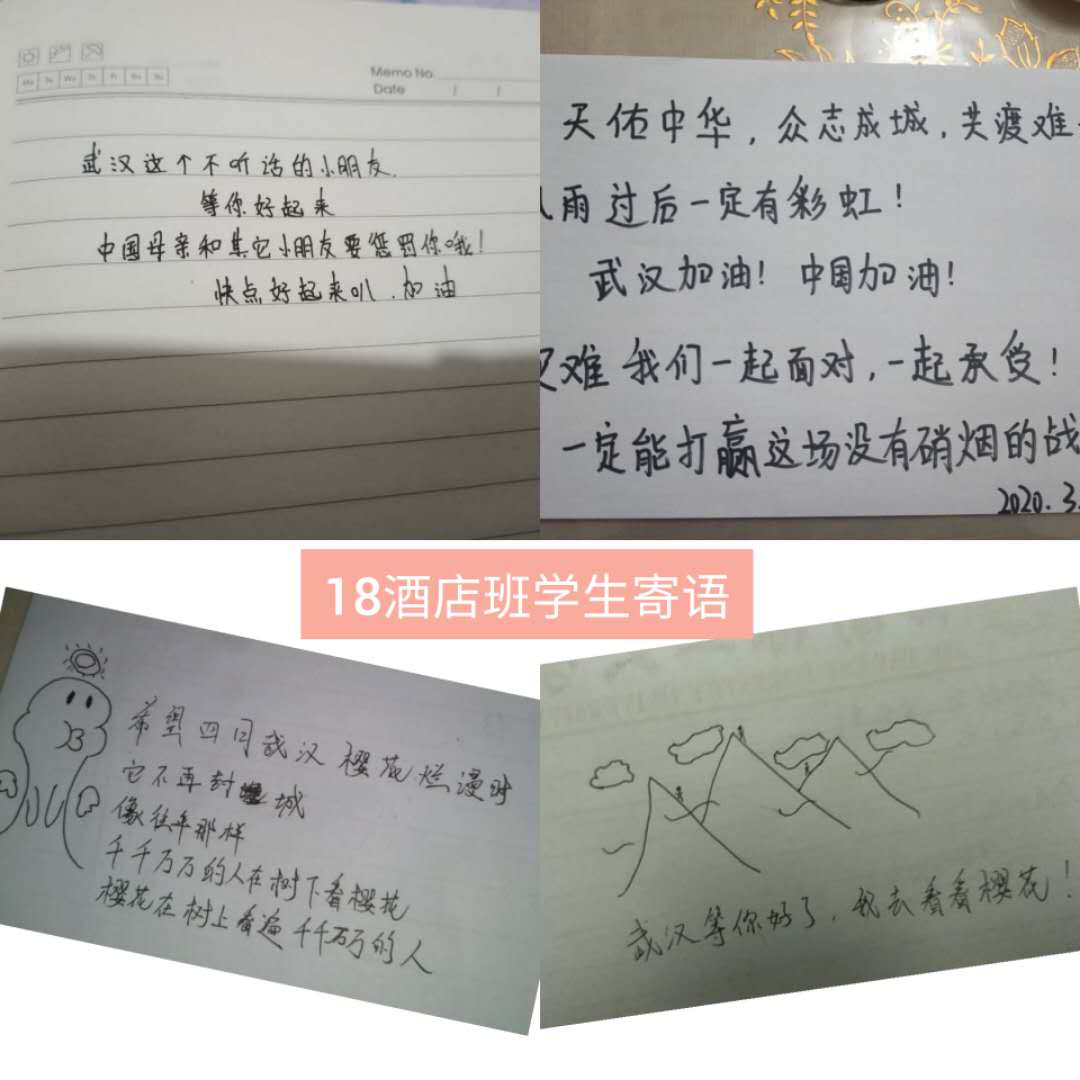 Memo No.
Date / /
Mo Tu We Th Fr Sa Su
武汉这个不听话的小朋友.
等你好起来
中国母亲和其它小朋友要惩罚你哦!
快点好起来叭.加油
天佑中华,众志成城,共渡难
雨过后一定有彩虹!
武汉加油!中国加油!
难 我们一起面对,一起承受!
一定能打赢这场没有硝烟的战
2020.3.
18酒店班学生寄语
希望四月武汉樱花烂漫时
它不再封城
像往年那样
千千万万的人在树下看樱花
樱花在树上看遍千千万万的人
武汉等你好了,我去看看樱花!